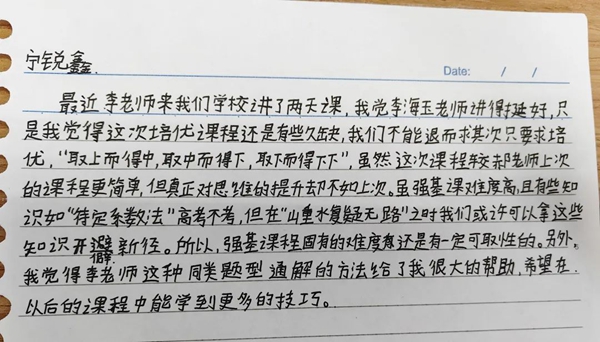 宁锐鑫.
Date: / /
最近李老师来我们学校讲了两天课,我觉李海玉老师讲得挺好,只
是我觉得这次培优课程还是有些欠缺,我们不能退而求其次只要求培
优,“取上而得中,取中而得下,取下而得下下”,虽然这次课程较郝老师上次
的课程更简单,但真正对思维的提升却不如上次。虽强基课难度高,且有些知
识如“待定系数法”高考不考,但在“山重水复疑无路”之时我们或许可以拿这些
知识开辟新径。所以,强基课程固有的难度还是有一定可取性的。另外,
我觉得李老师这种同类题型通解的方法给了我很大的帮助,希望在
以后的课程中能学到更多的技巧。